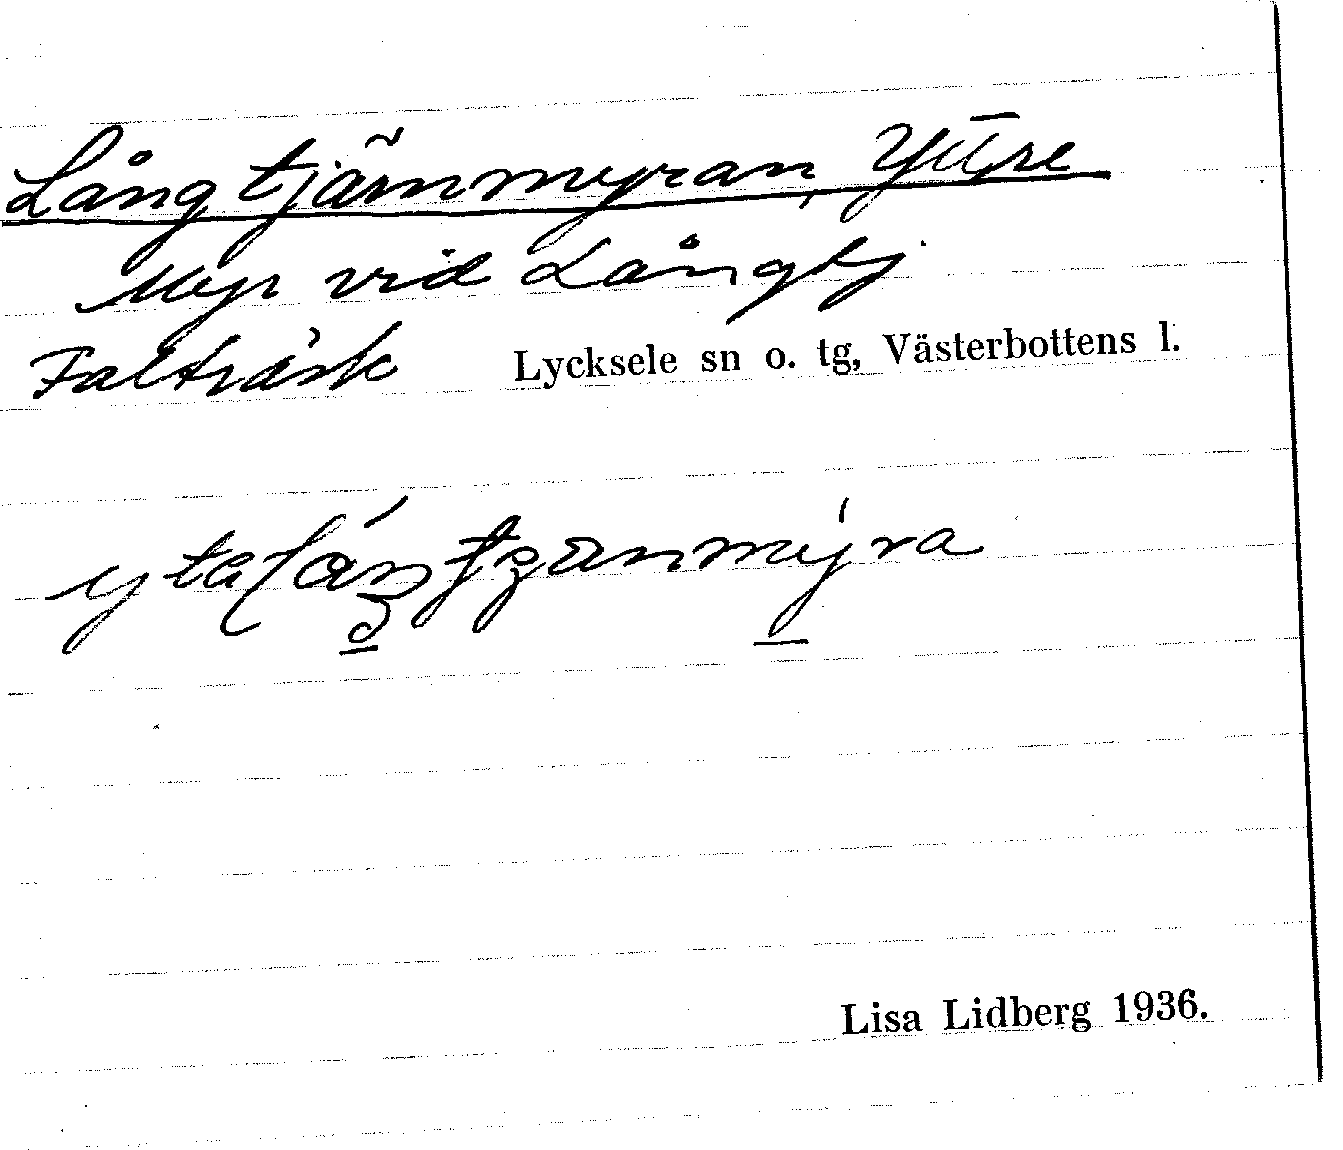 Långtjärnmyran, Yttre
Myr vid Långtj
Falträsk Lycksele sn o. tg, Västerbottens l.
Lisa Lidberg 1936.